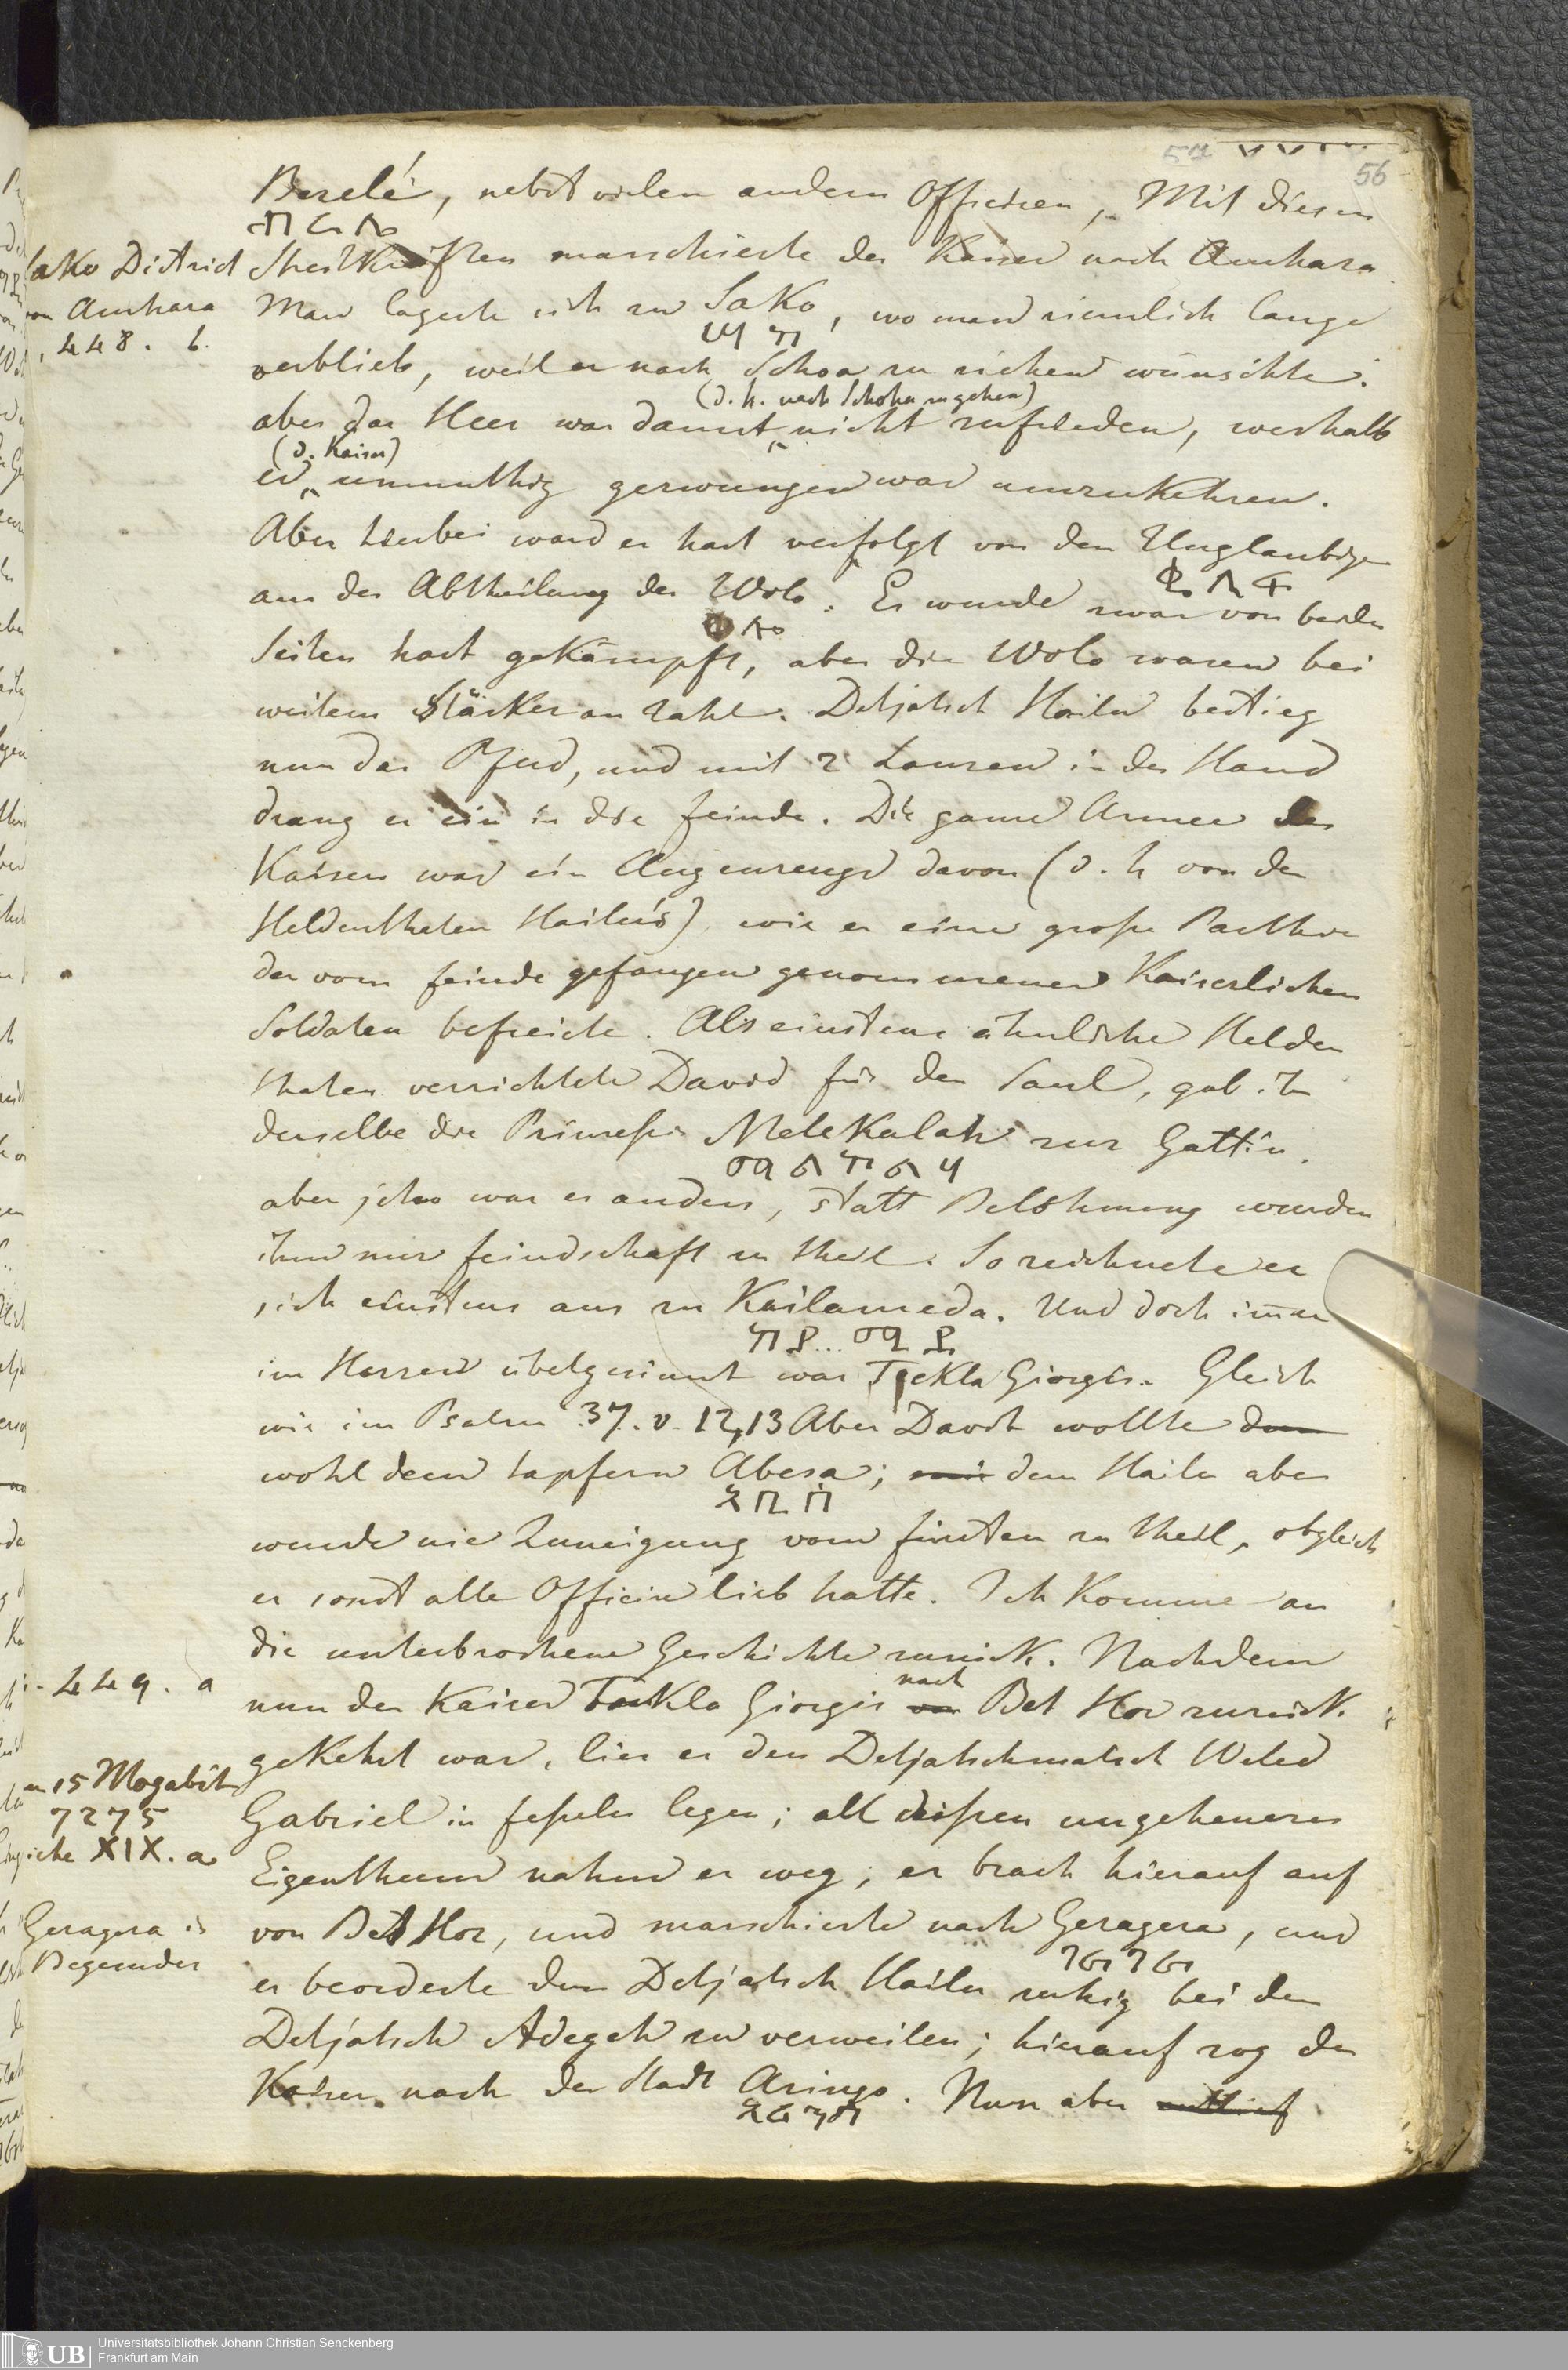 57 56
Berelé, nebst vielen andern Officiren, Mit diesen
በሬሌ
Streitkräften marschierte der Kaiser nach Amhara.
Sako District
von Amhara
448. b.
Man lagerte sich zu Sako, wo man ziemlich lange
ሣኮ
verblieb, weil er nach Schoa zu ziehen wünschte.
(d. h. nach Schoha zu gehen)
aber das Heer war damit nicht zufrieden, weshalb
(d. Kaiser)
er unmuthig gezwungen war umzukehren.
Aber hierbei ward er hart verfolgt von den Unglaubigen
aus der Abtheilung der Wolo. Es wurde zwar von beiden
Seiten hart gekämpft, aber die Wolo waren bei
weitem stärker an Zahl. Detjatsch Hailu bestieg
nun das Pferd, und mit 2 Lanzen in der Hand
drang er ein in die Feinde. Die ganze Armee des
Kaisers war ein Augenzeuge davon (d. h von den
Heldenthaten Hailu's) wie er eine große Parthie
der vom Feinde gefangen genommenen Kaiserlichen
Soldaten befreite. Als einstens ähnliche Helden
thaten verrichtete David für den Saul, gab ihm
derselbe die Prinzeßin Melekalah zur Gattin.
መልኮልህ
aber jetzo war es anders, statt Belohnung wurden
ihm nur Feindschaft zu theil. So zeichnete er
sich einstens aus zu Kailameda. Und doch immer
im Herzen übelgesinnt war Teekla Giorgis. Gleich
wie im Psalm 37. v. 12,13 Aber David wollte
wohl dem tapfern Abesa; dem Hailu aber
አቢሳ
wurde nie Zuneigung vom Fürsten zu theil, obgleich
er sonst alle Officire lieb hatte. Ich Komme an
die unterbrochene Geschichte zurück. Nachdem
449. a
nun der Kaiser Teekla Giorgis nach Bet Hor zurück
gekehrt war, lies er den Detjatschmatsch Weled
am 15 Magabit
7275
siehe XIX. a
Gabriel in feßeln legen; all deißen ungeheueres
Eigenthum nahm er weg; er brach hierauf auf
Geragera in
Begemder
von Bet Hor, und marschierte nach Geragera, und
ገራገራ
er beorderte den Detjatsch Hailu ruhig bei dem
Detjatsch Adegeh zu verweilen; hierauf zog der
Kaiser nach der Stadt Aringo. Nun aber
አሪንጎ
UB Universitätsbibliothek Johann Christian Senckenberg
Frankfurt am Main